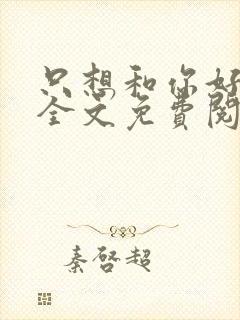 只想和你好
全文免费阅
秦啓超